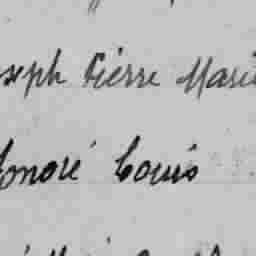 oseph Pierre Marie
Honoré Louis